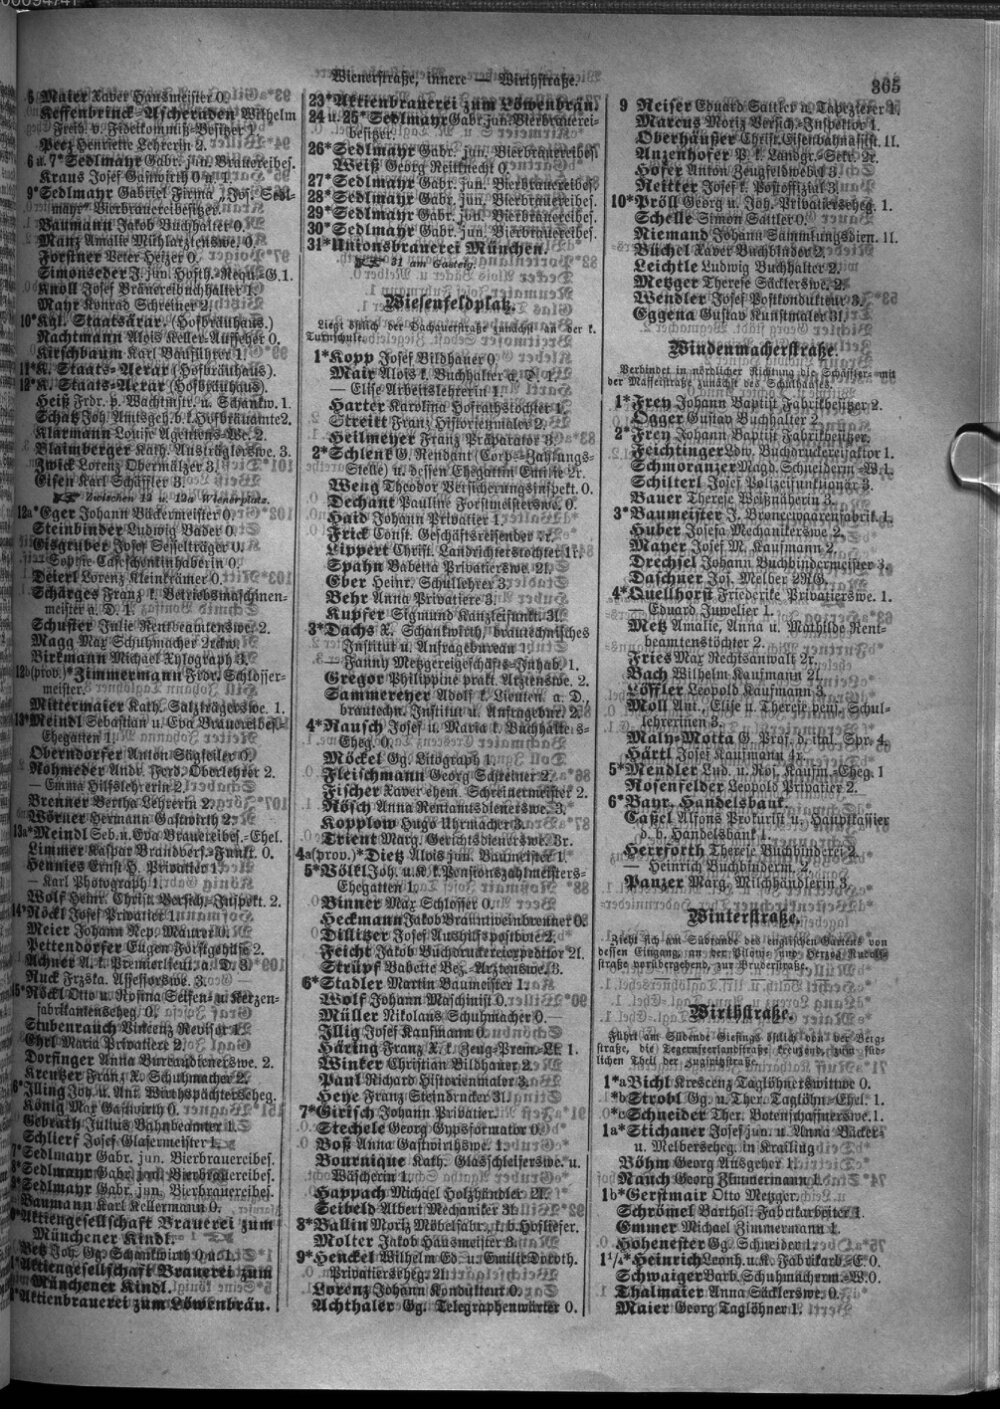 Wienerstraße, innere — Wirthstraße.
365
5 Maier Xaver Hausmeister 0.
Reffenbrinck-Ascheraden Wilhelm
Freih. v. Fideikommiß-Besitzer 1.
Peez Henriette Lehrerin 2.
6 u. 7*Sedlmayr Gabr. jun. Brauereibes.
Kraus Josef Gastwirth 0 u. 1.
9*Sedlmayr Gabriel Firma „Jos. Sedl-
mayr" Bierbrauereibesitzer.
Baumann Jakob Buchhalter 0.
Manz Amalie Mühlarztenswe. 0.
Forstner Peter Heizer 0.
Simonseder J. jun. Hofth.-Requ.-G. 1.
Knoll Josef Bräuereibuchhalter 1.
Mayr Konrad Schreiner 2.
10*Kgl. Staatsärar. (Hofbräuhaus.)
Nachtmann Alois Keller-Aufseher 0.
Kirschbaum Karl Bauführer 1.
11*K. Staats-Aerar (Hofbräuhaus).
12*K. Staats-Aerar (Hofbräuhaus).
Heiß Frdr. p. Wachtmstr. u. Schänkw. 1.
Schatz Joh. Amtsgeh. b. k. Hofbräuamte 2.
Klarmann Louise Agentens-We. 2.
Blaimberger Kath. Austräglerswe. 3.
Zwick Lorenz Obermälzer 3.
Eisen Karl Schäffler 3.
Zwischen 12 u. 12a Wienerplatz.
12a*Eger Johann Bäckermeister 0.
Steinbinder Ludwig Bader 0.
Gisgruber Josef Sesselträger 0.
— Sophie Caféschenkinhaberin 0.
Deierl Lorenz Kleinkrämer 0.
Schärges Franz k. Betriebsmaschinen-
meister a. D. 1.
Schuster Julie Rentbeamtenswe. 2.
Magg Max Schuhmacher 2rckw.
Birkmann Michael Xylograph 3.
12b(prov.)*Zimmermann Frdr. Schlosser-
meister.
Mittermaier Kath. Salzträgerswe. 1.
13*Meindl Sebastian u. Eva Brauereibes.-
Ehegatten 1.
Oberndorfer Anton Sägfeiler 0.
Rohmeder Andr. Ferd. Oberlehrer 2.
— Emma Hilfslehrerin 2.
Brenner Bertha Lehrerin 2.
Wörner Hermann Gastwirth 2.
13a*Meindl Seb. u. Eva Brauereibes.-Ehel.
Limmer Kaspar Brandvers.-Funkt. 0.
Hennies Ernst H. Privatier 1.
— Karl Photograph 1.
Wolf Heinr. Christ. Versich.-Inspekt. 2.
14*Röckl Josef Privatier 1.
Meier Johann Nep. Maurer 0.
Pettendorfer Eugen Forstgehilfe 2.
Achner A. k. Premierlieut. a. D. 3.
Ruck Frzska. Assessorswe. 3.
15*Röckl Otto u. Rosina Seifen- u. Kerzen-
fabrikantenseheg. 0.
Stubenrauch Vincenz Revisor 1.
Ehrl Maria Privatiere 2.
Dorfinger Anna Bureaudienerswe. 2.
Kreutzer Franz X. Schuhmacher 2.
Illing Joh. u. Ant. Wirthspächterseheg.
König Max Gastwirth 0.
Gebrath Julius Bahnbeamter 1.
Schlierf Josef Glasermeister 1.
Sedlmayr Gabr. jun. Bierbrauereibes.
Sedlmayr Gabr. jun. Bierbrauereibes.
Sedlmayr Gabr. jun. Bierbrauereibes.
Baumann Karl Kellermann 0.
*Aktiengesellschaft Brauerei zum
Münchener Kindl.
Veh Joh. Gg. Schänkwirth 0 u. 1.
*Aktiengesellschaft Brauerei zum
Münchener Kindl.
*Aktienbrauerei zum Löwenbräu.
23*Aktienbrauerei zum Löwenbräu.
24 u. 25*Sedlmayr Gabr. jun. Bierbrauerei-
besitzer.
26*Sedlmayr Gabr. jun. Bierbrauereibes.
Weiß Georg Reitknecht 0.
27*Sedlmayr Gabr. jun. Bierbrauereibes.
28*Sedlmayr Gabr. jun. Bierbrauereibes.
29*Sedlmayr Gabr. jun. Bierbrauereibes.
30*Sedlmayr Gabr. jun. Bierbrauereibes.
31*Unionsbrauerei München.
31 am Gasteig.
Wiesenfeldplatz.
Liegt östlich der Dachauerstraße zunächst an der k.
Turnschule.
1*Kopp Josef Bildhauer 0.
Mair Alois k. Buchhalter a. D. 1.
— Elise Arbeitslehrerin 1.
Harter Karolina Hofrathstochter 1.
Streitt Franz Historienmaler 2.
Heilmeyer Franz Präparator 3.
2*Schlenk G. Rendant (Corps-Zahlungs-
Stelle) u. dessen Ehegattin Emilie 2r.
Weng Theodor Versicherungsinspekt. 0.
Dechant Pauline Forstmeisterswe. 0.
Haid Johann Privatier 1.
Frick Const. Geschäftsreisender 1r.
Lippert Christ. Landrichterstochter 1r.
Spahn Babetta Privatierswe. 2l.
Eber Heinr. Schullehrer 3.
Behr Anna Privatiere 3.
Kupfer Sigmund Kanzleifunkt. 3l.
3*Dachs X. Schankwirth, brautechnisches
Institut u. Anfragebureau 1.
— Fanny Metzgereigeschäfts-Inhab. 1.
Gregor Philippine prakt. Arztenswe. 2.
Sammereyer Adolf k. Lieuten. a. D.
brautechn. Institut u. Anfragebur. 2.
4*Rausch Josef u. Maria k. Buchhalters-
Eheg. 0.
Möckel Gg. Litograph 1.
Fleischmann Georg Schreiner 2.
Fischer Xaver ehem. Schreinermeister 2.
Rösch Anna Rentamtsdienerswe. 3.
Kopplow Hugo Uhrmacher 3.
Trient Marg. Gerichtsdienerswe. 3r.
4a(prov.)*Dietz Alois jun. Baumeister 1.
5*Völkl Joh. u. K. k. Pensionszahlmeisters-
Ehegatten 1.
Binner Max Schlosser 0.
Heckmann Jakob Branntweinbrenner 0.
Dillitzer Josef Aushilfspostbote 2.
Feicht Jakob Buchdruckereiexpeditor 2l.
Strüpf Babette Bez.-Arztenswe. 3.
6*Stadler Martin Baumeister 1.
Wolf Johann Maschinist 0.
Müller Nikolaus Schuhmacher 0.
Illig Josef Kaufmann 0.
Häring Franz X. k. Zeug-Prem.-Lt. 1.
Winker Christian Bildhauer 2.
Paul Richard Historienmaler 3.
Heye Franz Steindrucker 3l.
7*Girisch Johann Privatier.
Stechele Georg Gypsformator 0.
Voß Anna Gastwirthswe. 1.
Bournique Kath. Glasschleiferswe. u.
Wäscherin 1.
Happach Michael Holzhändler 2l.
Seibeld Albert Mechaniker 3l.
8*Ballin Moriz Möbelfabr., k. b. Hoflieser.
Molter Jakob Hausmeister 3.
9*Henckel Wilhelm Ed. u. Emilie Doroth.
Privatierseheg. 2l.
Lorenz Johann Kondukteur 0.
Achthaler Gg. Telegraphenwärter 0.
9 Reiser Eduard Sattler u. Tapezierer 1.
Marcus Moriz Versich.-Inspektor 1.
Oberhäußer Christ. Eisenbahnassist. 1l.
Anzenhofer P. k. Landgr.-Sekr. 2r.
Höfer Anton Zeugfeldwebel 3.
Reitter Josef k. Postoffizial 3.
10*Pröll Georg u. Joh. Privatierseheg. 1.
Schelle Simon Sattler 0.
Niemand Johann Sammlungsdien. 1l.
Büchel Xaver Buchbinder 2.
Leichtle Ludwig Buchhalter 2.
Metzger Therese Säcklerswe. 2.
Wendler Josef Postkondukteur 3.
Eggena Gustav Kunstmaler 3l.
Windenmacherstraße.
Verbindet in nördlicher Richtung die Schäffler- mit
der Maffeistraße zunächst des Schulhauses.
1*Frey Johann Baptist Fabrikbesitzer 2.
Ogger Gustav Buchhalter 2.
2*Frey Johann Baptist Fabrikbesitzer.
Feichtinger Ldw. Buchdruckereifaktor 1.
Schmoranzer Magd. Schneiderin-W. 1.
Schilterl Josef Polizeifunktionär 3.
Bauer Therese Weißnäherin 3.
3*Baumeister J. Broncewaarenfabrik. 1.
Huber Josefa Mechanikerswe. 2.
Mayer Josef M. Kaufmann 2.
Drechsel Johann Buchbindermeister 3.
Daschner Jos. Melber 2RG.
4*Quellhorst Friederike Privatierswe. 1.
— Eduard Juwelier 1.
Metz Amalie, Anna u. Mathilde Rent-
beamtenstöchter 2.
Fries Max Rechtsanwalt 2r.
Bach Wilhelm Kaufmann 2l.
Löffler Leopold Kaufmann 3.
Moll Ant., Elise u. Therese pens. Schul-
lehrerinen 3.
Maly-Motta G. Prof. d. ital. Spr. 4.
Härtl Josef Kaufmann 4r.
5*Mendler Lud. u. Ros. Kaufm.-Eheg. 1
Rosenfelder Leopold Privatier 2.
6*Bayr. Handelsbank.
Caßel Alfons Prokurist u. Hauptkassier
d. b. Handelsbank 1.
Herrforth Therese Buchbinderei 2.
— Heinrich Buchbinderm. 2.
Panzer Marg. Milchhändlerin 3.
Winterstraße.
Zieht sich am Südrande des englischen Gartens von
dessen Eingang, an der Pilotý- und Herzog Rudolf-
straße vorübergehend, zur Bruderstraße.
Wirthstraße.
Führt am Südende Giesings östlich von der Berg-
straße, die Tegernseerlandstraße kreuzend, zum süd-
lichen Theil der Zugspitzstraße.
1*a Bichl Krescenz Taglöhnerswittwe 0.
*b Strobl Gg. u. Ther. Taglöhn.-Ehel. 1.
*c Schneider Ther. Botenschaffnerswe. 1.
1a*Stichaner Josef jun. u. Anna Bäcker-
u. Melberseheg. in Krailling
Böhm Georg Ausgeher 1.
Rauch Georg Zimmermann 1.
1b*Gerstmair Otto Metzger.
Schrömel Barthol. Fabrikarbeiter 1.
Emmer Michael Zimmermann 1.
Hohenester Gg. Schneider 1.
1¹/₄*Heinrich Leonh. u. K. Fabrikarb.-E. 0.
Schwaiger Barb. Schuhmacherm.-W. 0.
Thalmaier Anna Säcklerswe. 0.
Maier Georg Taglöhner 1.